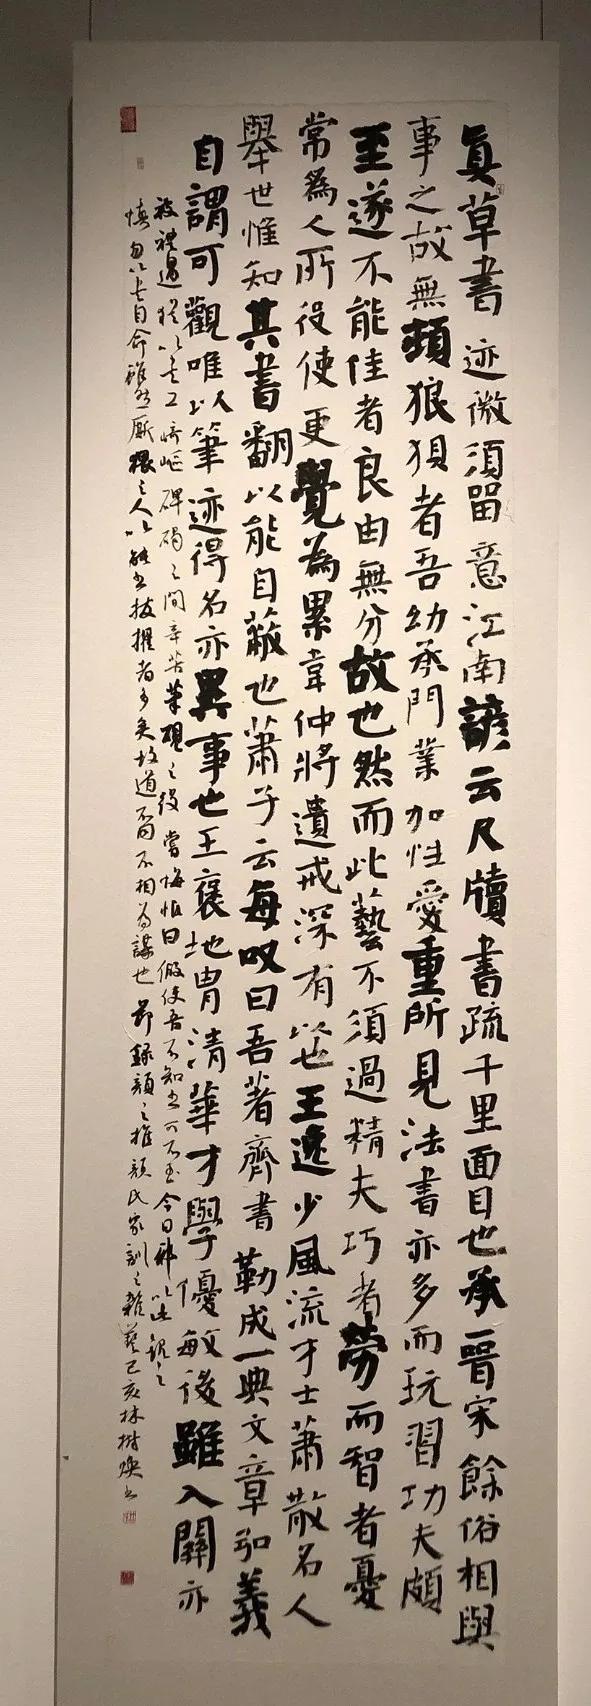 真草書迹微須留意江南諺云尺牘書疏千里面目也承晉宋餘俗相與
事之故無頓狼狽者吾幼承門業加性愛重所見法書亦多而玩習功夫頗
至遂不能佳者良由無分故也然而此藝不須過精夫巧者勞而智者憂
常為人所役使更覺為累韋仲將遺戒深有以也王逸少風流才士蕭散名人
舉世惟知其書翻以能自蔽也蕭子云每叹曰吾著齊書勒成一典文章弘義
自謂可觀唯以筆迹得名亦異事也王褒地胄清華才學優敏後雖入關亦
被禮遇猶以書工崎嶇碑碣之間辛苦筆硯之役嘗悔恨曰假使吾不知書可不至今日邪以此觀之
慎勿以書自命雖然廝猥之人以能書拔擢者多矣故道不同不相為謀也節錄顏之推顏氏家訓之雜藝己亥林樹煥書